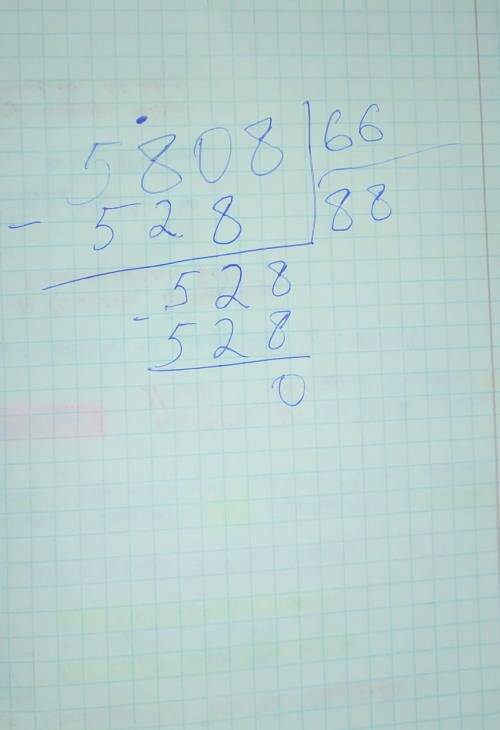 5808 66
- 528 88
528
- 528
0